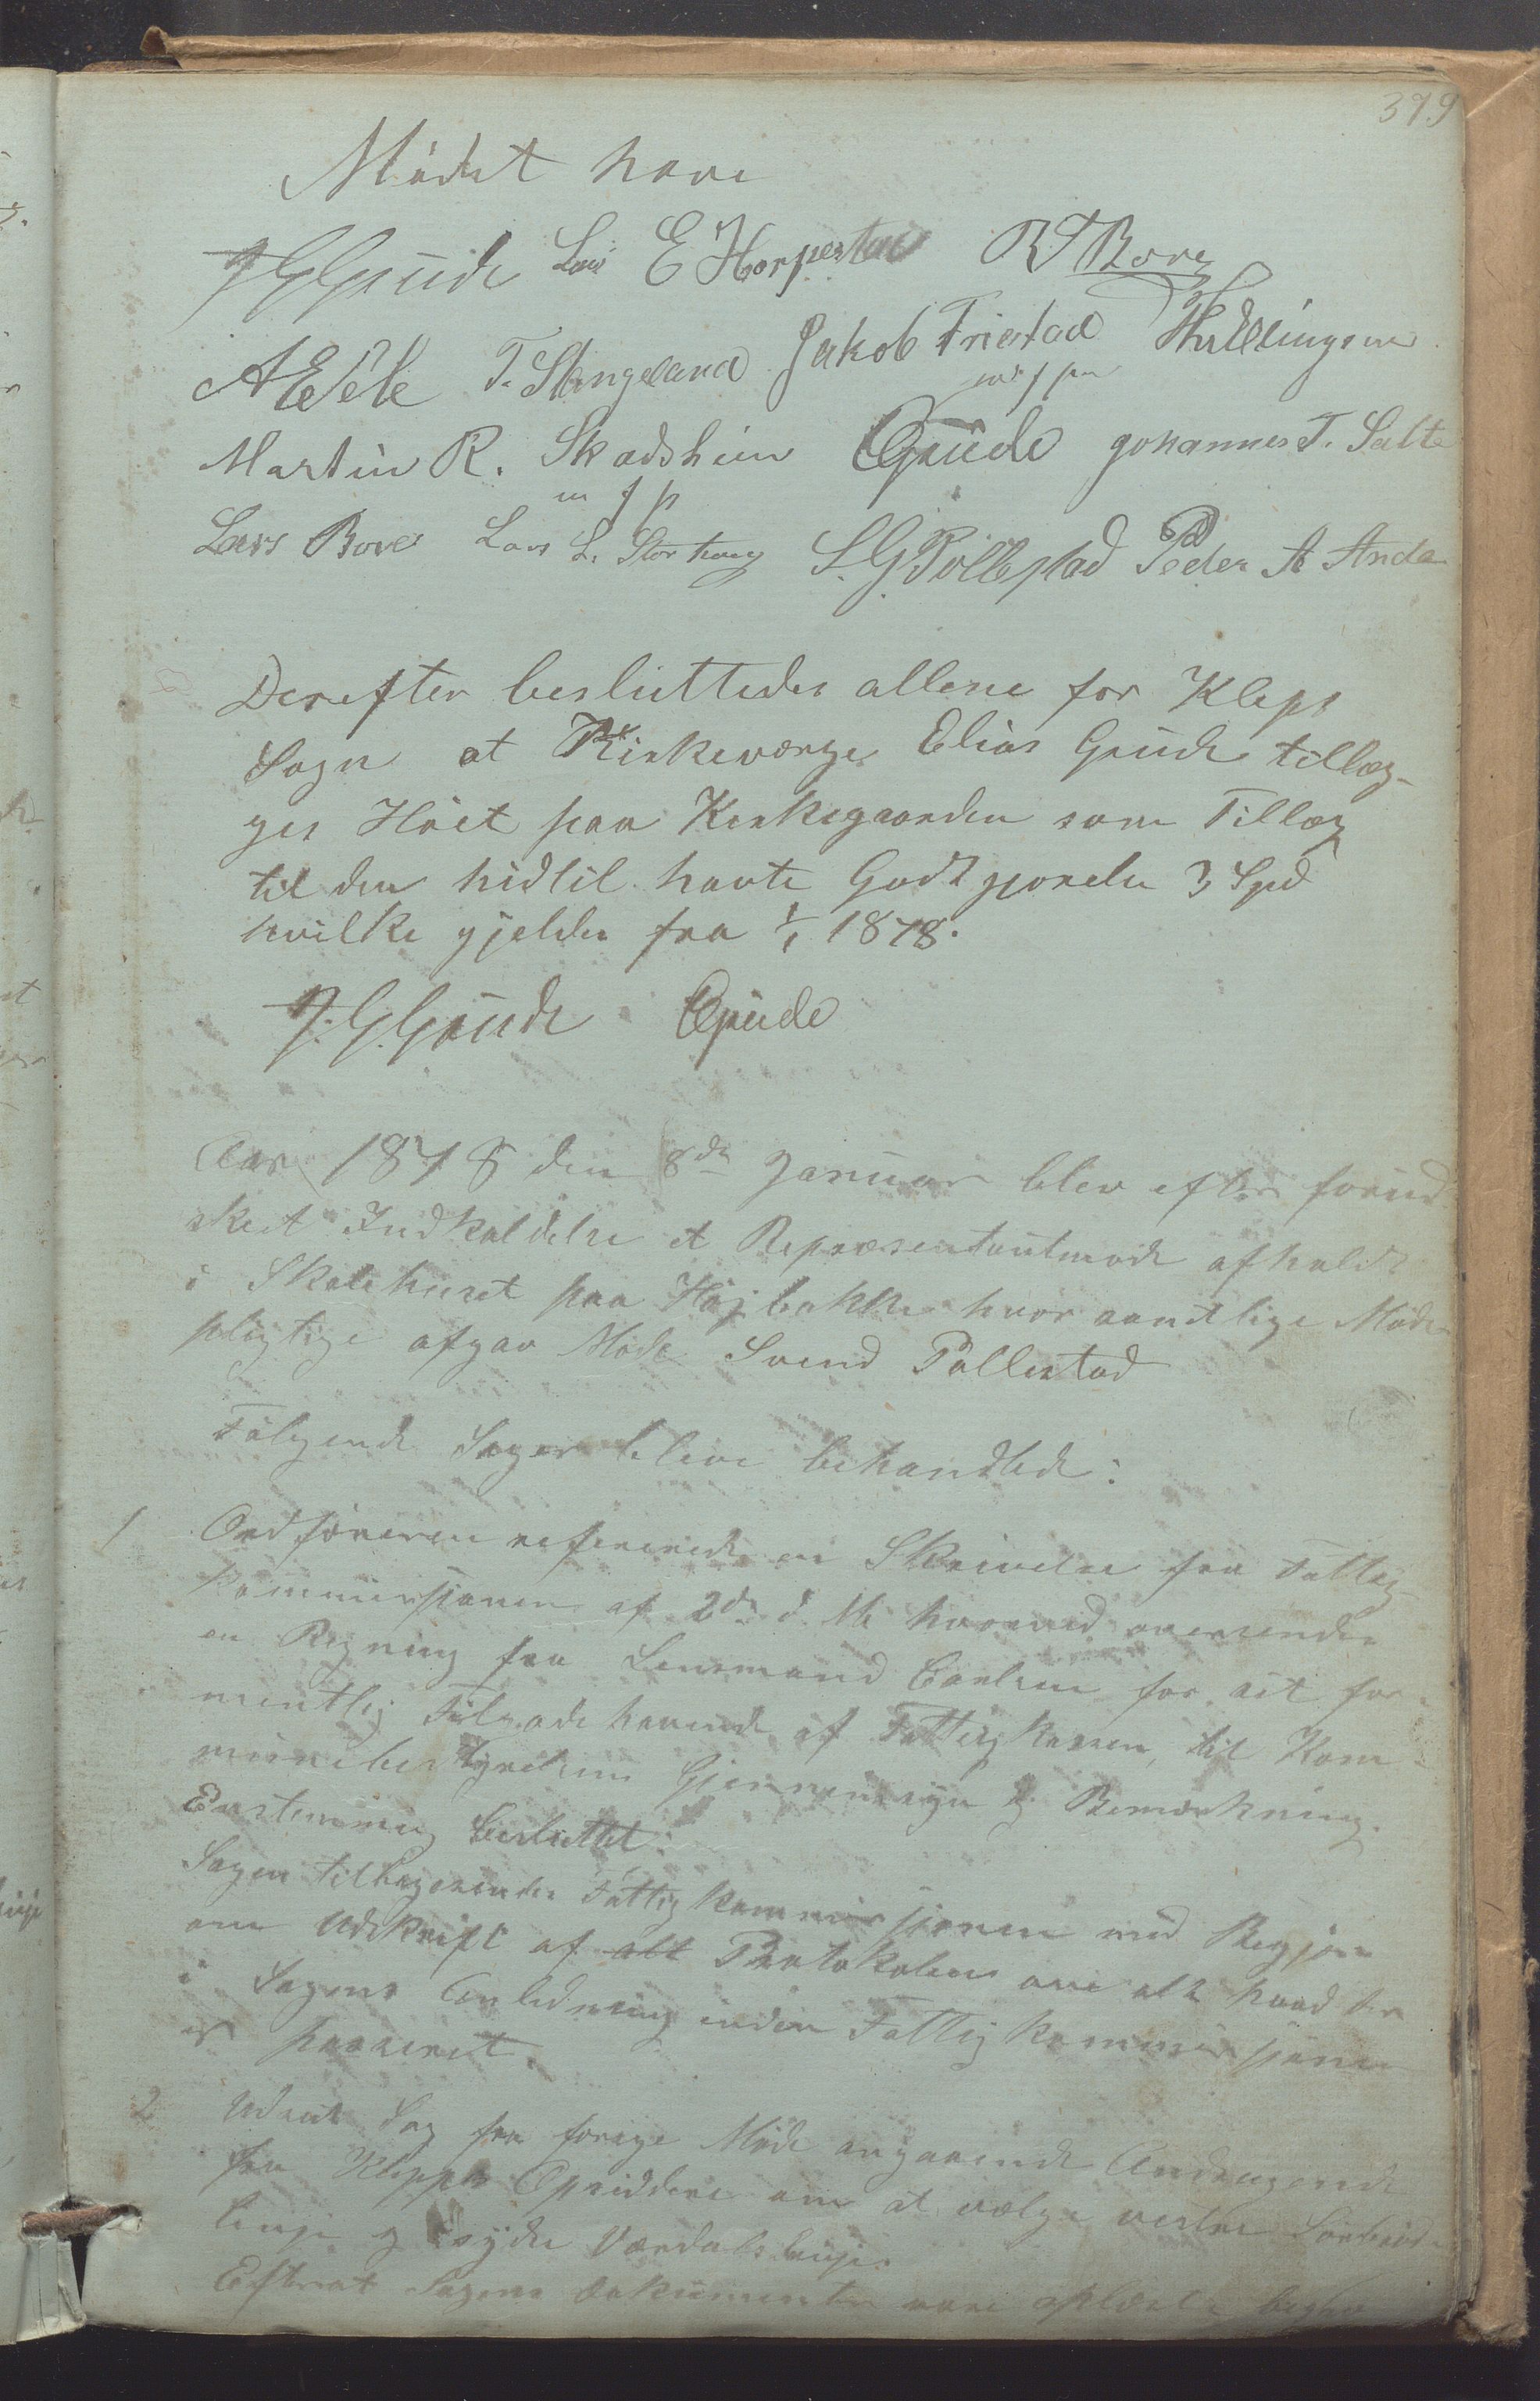 379
Mødet hævi
J G Grude Lars E Horpestad R T Bore
A E Vete T. Stangeland Jakob Friestad T Hallingsen
m f p
Martin R. Skadsheim E Grude Johannes T. Salte
m f p
Lars Bore Lars L. Storhaug S. G. Pollestad Peder A Anda
Derefter besluttedes allene for Klepp
Sogn at Kirkeværge Elias Grude tillæg-
ges Høet paa Kirkegaarden som Tillæg
til den hidtil havte Godtgjørelse 3 Spd
hvilke gjelder fra 1/1 1878.
J. G. Grude E Grude
Aar 1878 den 8de Januar blev efter forud
skeet Indkaldelse et Repræsentantmøde afholdt
i Skolehuset paa Højbakke hvor samtlige Møde-
pligtige afgav Møde Svend Pollestad
Følgende Sager bleve behandlede:
1 Ordføreren refererede en Skrivelse fra Fattig-
kommissjonen af 2de d. M. hvorved oversendes
en Regning fra Lensmand Carlsen for sit for-
mentlig Tilgodehavende af Fattigkassen, til Kom-
munebestyrelsens Gjennemsyn og Bemærkning.
Eenstemmig besluttet:
Sagen tilbagesendes Fattigkommissjonen med Begjær
om Udskrift af alt Protokolen om alt hvad der
i Sagens Anledning inden Fattigkommissjonen
er passeret.
2 Udsat Sag fra forige Møde angaaende Andragende
fra Klepps Opsiddere om at vælge vestre
linje og søndre linje.
Efterat Sagens Dokumenter vare oplæste